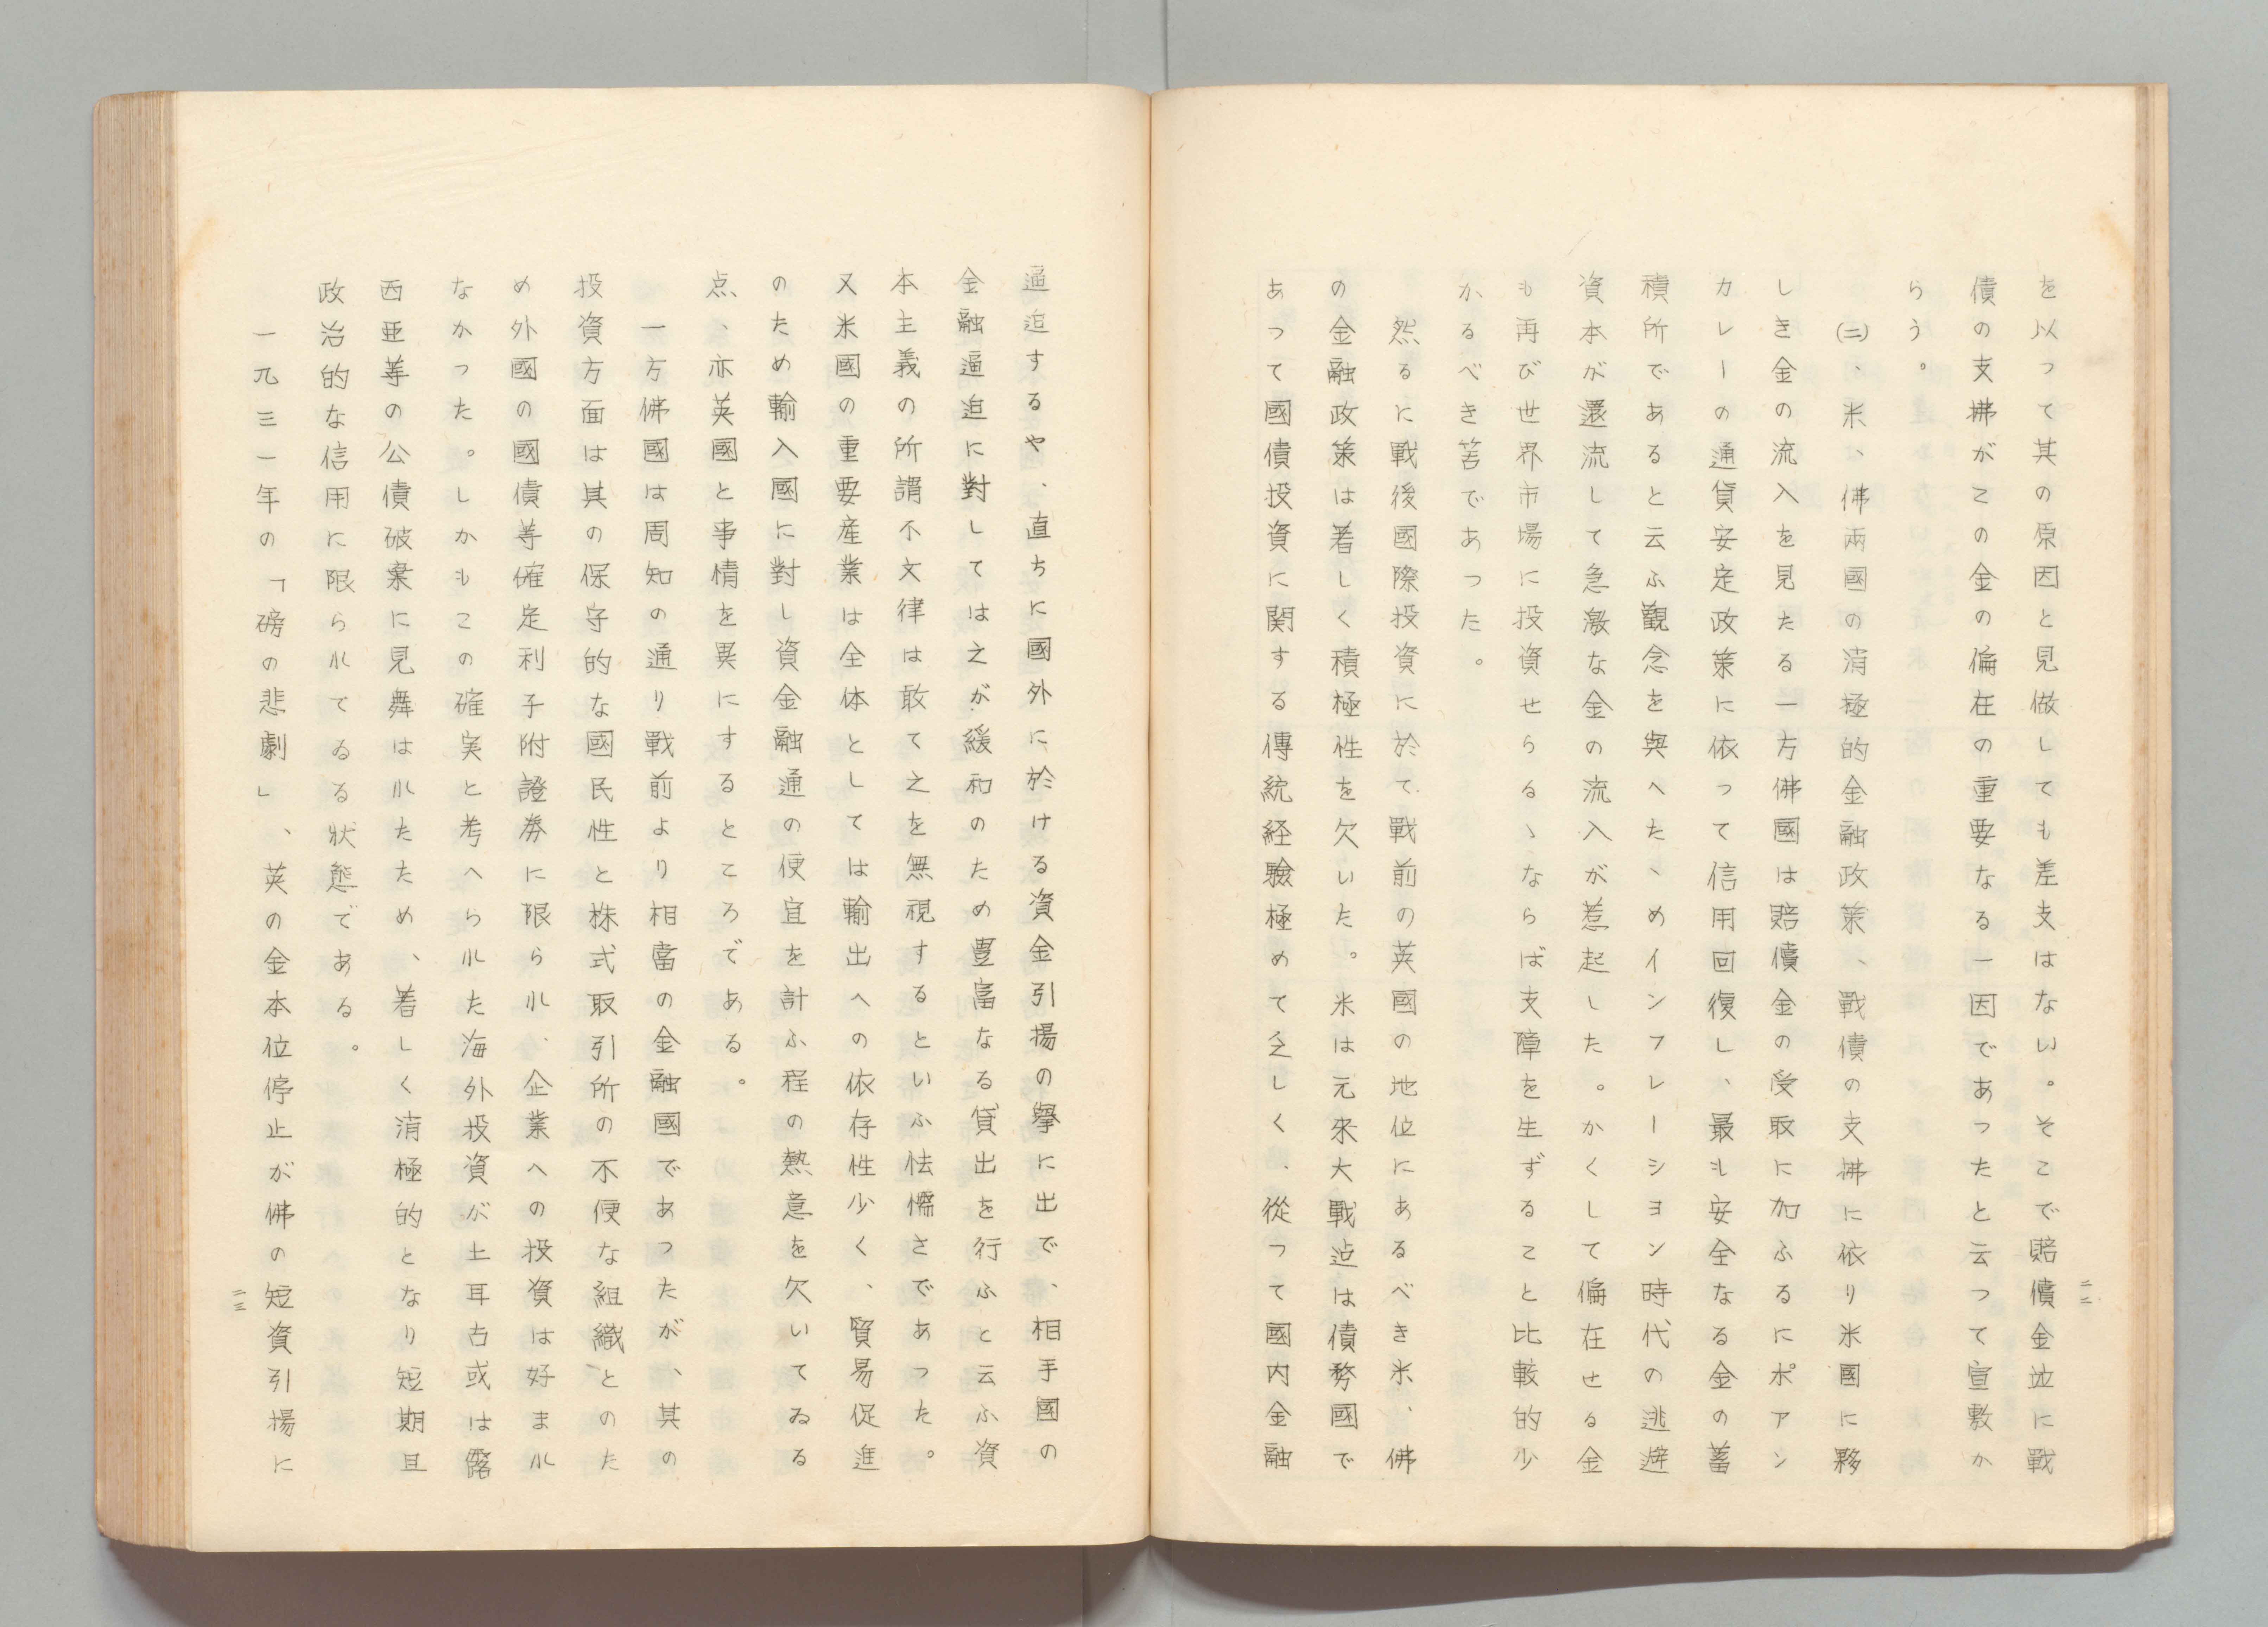 を以って其の原因と見做しても差支はない。そこで賠償金竝に戰
債の支拂がこの金の偏在の重要なる一因であったと云って宣敷か
らう。
㈡、米、佛兩國の消極的金融政策、戰債の支拂に依り米國に夥
しき金の流入を見たる一方佛國は賠償金の受取に加ふるにポアン
カレーの通貨安定政策に依って信用回復し、最も安全なる金の蓄
積所であると云ふ觀念を與へたゝめインフレーション時代の逃避
資本が還流して急激な金の流入が惹起した。かくして偏在せる金
も再び世界市場に投資せらるゝならば支障を生ずること比較的少
かるべき筈であった。
然るに戰後國際投資に於て戰前の英國の地位にあるべき米、佛
の金融政策は着しく積極性を欠いた。米は元來大戰迠は債務國で
あって國債投資に関する傳統経驗極めて乏しく、從って國内金融
二二
逼迫するや、直ちに國外に於ける資金引揚の擧に出で、相手國の
金融逼迫に對しては之が緩和のため豊富なる貸出を行ふと云ふ資
本主義の所謂不文律は敢て之を無視するといふ怯懦さであった。
又米國の重要産業は全体としては輸出への依存性少く、貿易促進
のため輸入國に對し資金融通の便宜を計ふ程の熱意を欠いてゐる
点、亦英國と事情を異にするところである。
一方佛國は周知の通り戰前より相當の金融國であったが、其の
投資方面は其の保守的な國民性と株式取引所の不便な組織とのた
め外國の國債等確定利子附證券に限られ、企業への投資は好まれ
なかった。しかもこの確実と考へられた海外投資が土耳古或は露
西亜等の公債破棄に見舞はれたため、着しく消極的となり短期且
政治的な信用に限られてゐる状態である。
一九三一年の「磅の悲劇」、英の金本位停止が佛の短資引揚に
二三